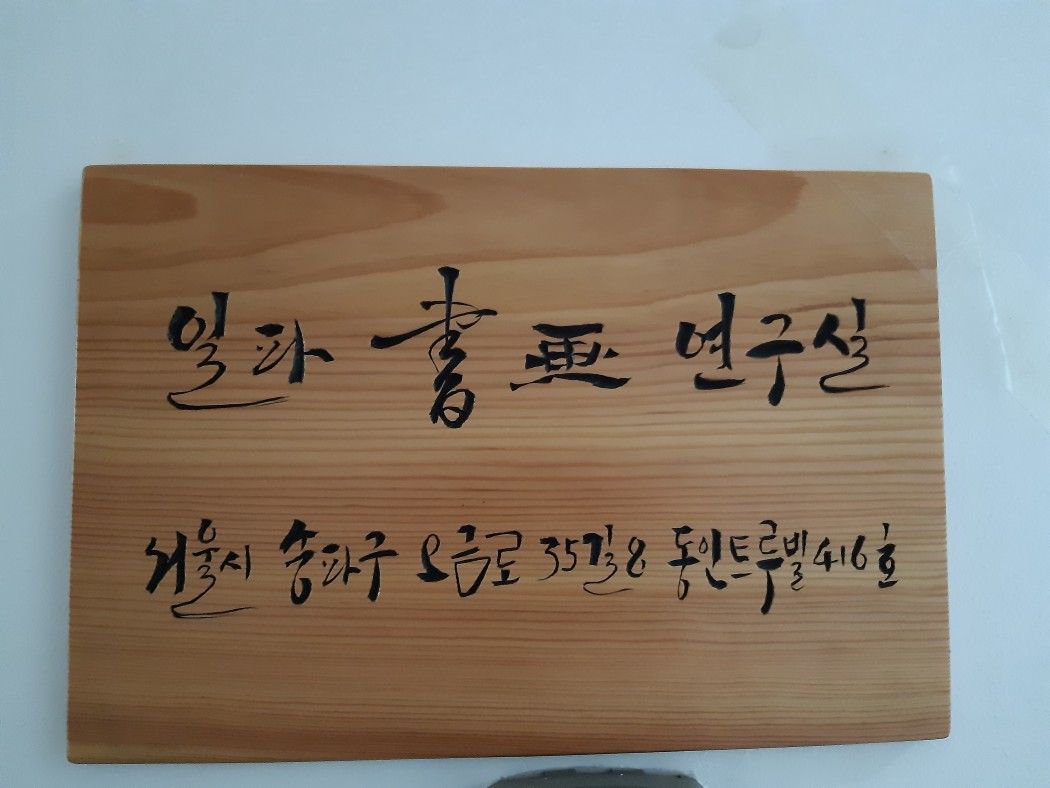 일파 書画 연구실
서울시 송파구 오금로 35길 8 동인트루빌 416호